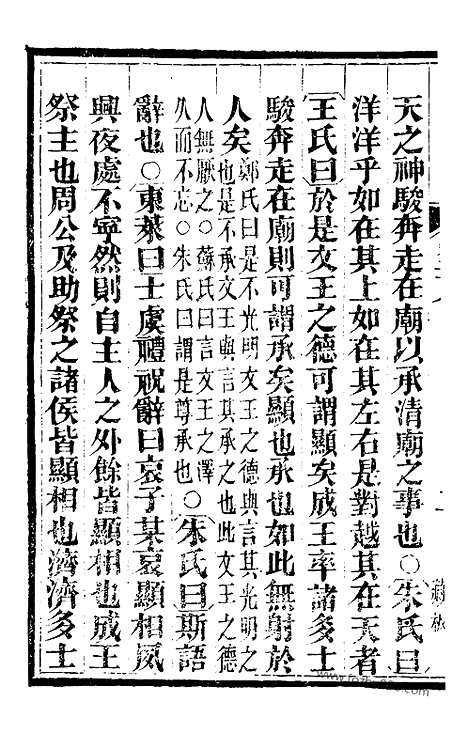 天之神駿奔走在廟以承清廟之事也○朱氏曰
洋洋乎如在其上如在其左右是對越其在天者
王氏曰於是文王之德可謂顯矣成王率諸多士
駿奔走在廟則可謂承矣顯也承也如此無射於
人矣鄭氏曰是不光明文王之德與言其光明之
也是不承文王與言其承之也此文王之德
人無厭之○蘇氏曰言文王之澤
久而不忘○朱氏曰謂是尊承也○朱氏曰斯語
辭也○東萊曰士虞禮祝辭曰哀子某哀顯相夙
興夜處不寧然則自主人之外餘皆顯相也成王
祭主也周公及助祭之諸侯皆顯相也濟濟多士